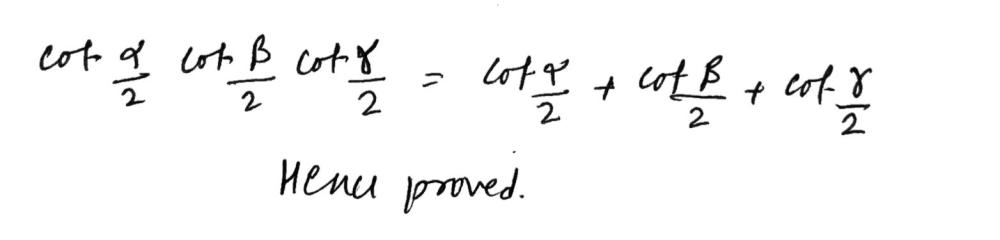 cot α/2 cot β/2 cot γ/2 = cot α/2 + cot β/2 + cot γ/2
Hence proved.